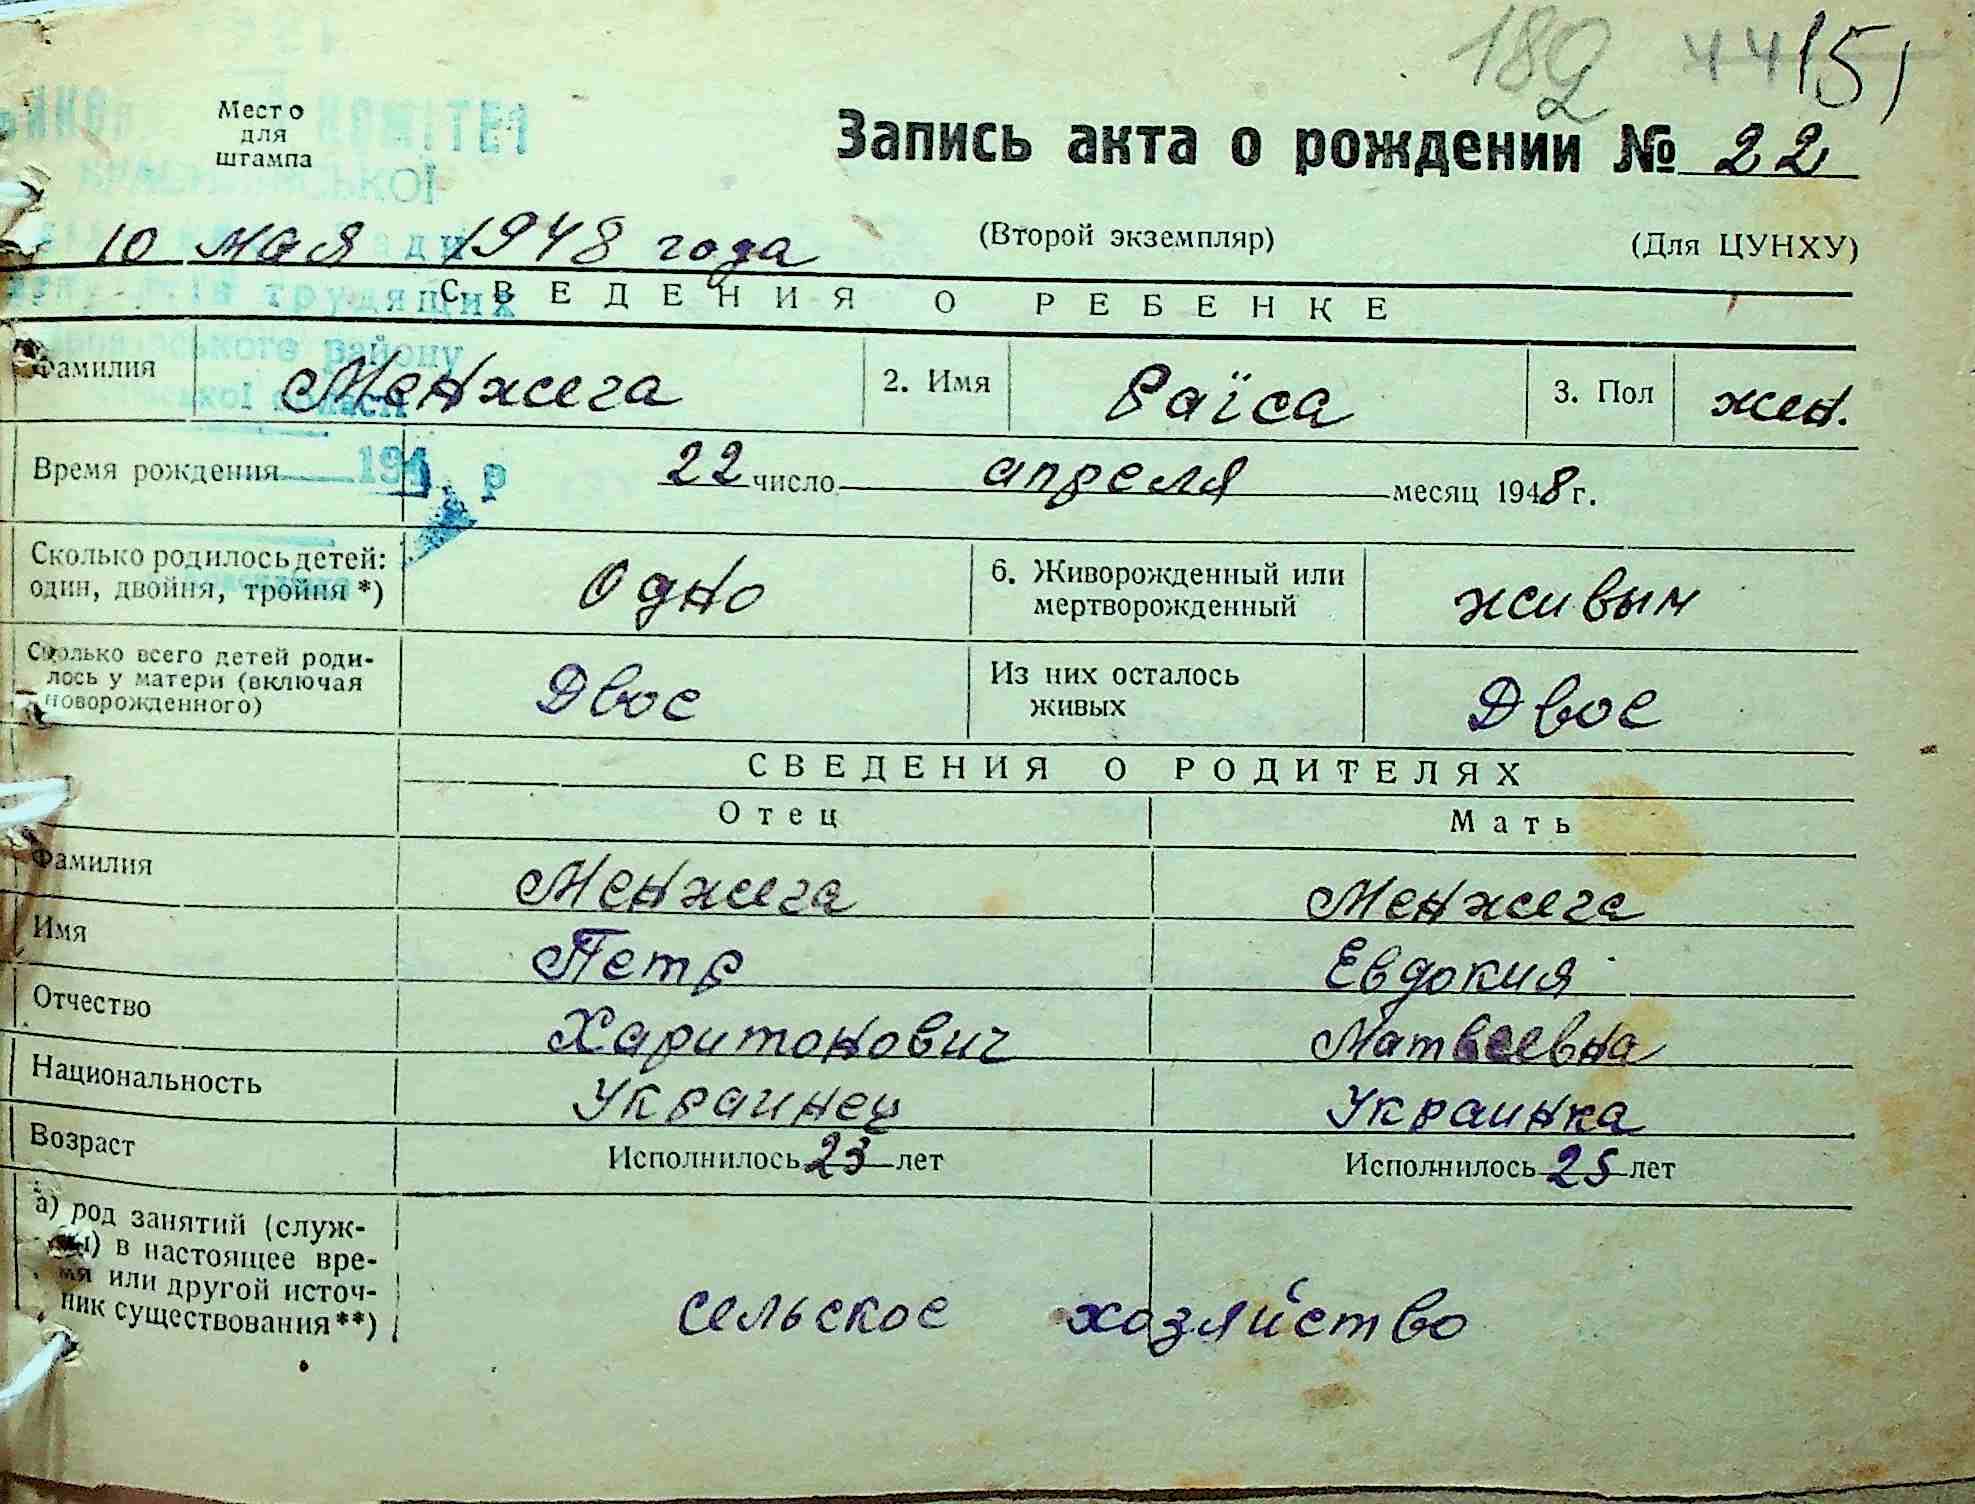 182 44 151
Место
для
штампа
Запись акта о рождении № 22
КОМІТЕТ
10 мая 1948 года
(Второй экземпляр)
(Для ЦУНХУ)
трудящих
СВЕДЕНИЯ О РЕБЕНКЕ
району
Фамилия Менжега 2. Имя Раїса 3. Пол жен.
області
Время рождения 22 число апреля месяц 1948 г.
194 р
Сколько родилось детей: один, двойня, тройня *) Одно 6. Живорожденный или мертворожденный живым
Сколько всего детей роди-
лось у матери (включая
новорожденного) Двое Из них осталось живых Двое
СВЕДЕНИЯ О РОДИТЕЛЯХ
Отец Мать
Фамилия Менжега Менжега
Имя Петр Евдокия
Отчество Харитонович Матвеевна
Национальность Украинец Украинка
Возраст Исполнилось 23 лет Исполнилось 25 лет
а) род занятий (служ-
бы) в настоящее вре-
мя или другой источ-
ник существования**) сельское хозяйство